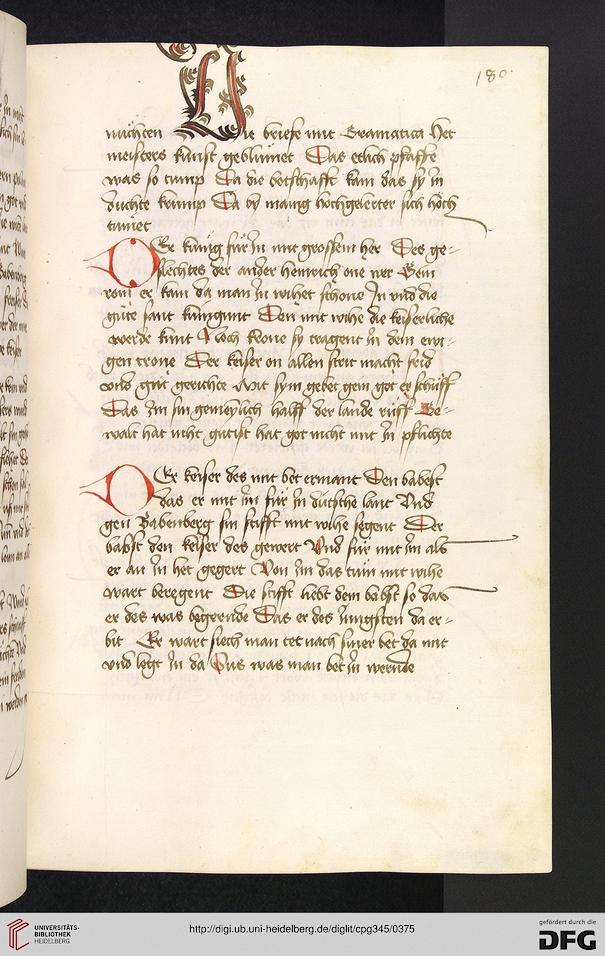 180
machten Die briefe mit Gramatica Het
meisters kunst geblümet Das etlich pfaffe
was so tump Da die botschafft kam das sy in
duchte krump Da by manig hochgelerter sich hoch
rümet
Der künig für Jn mit grossem her Des ge-
slechtes der ander heinrich one wer Gein
rom er kam da man Jn wihet schone Jn vnd die
gute sant kungunt Den mit wihe die keiserliche
werde kunt Noch krone sy tragent Jn dem ewi-
gen trone Der keiser on allen strit macht frid
vnd gut gerichte Mit sym gebet gein got er schuff
Das Jm sin gemeylich halff der lande ruff Ge-
walt hat nicht hat got nicht mit Jn pflichte
Der keiser des mit bet ermant Den babest
das er mit im für Jn dutsche lant Vnd
gen Babenberg sin stifft mit wihe segent Der
babst den keiser des gewert Vnd für mit Jm als
er an Jn het gegert Von Jm das tum mit wihe
wart beregent Die stifft liebt dem babst so das
er des was begernde Das er des Jungsten da er-
bit Er wart siech man tet nach siner bet da mit
vnd legt Jn da Vns was man bet Jn wernde
UNIVERSITÄTS-
BIBLIOTHEK
HEIDELBERG
http://digi.ub.uni-heidelberg.de/diglit/cpg345/0375
gefördert durch die
DFG